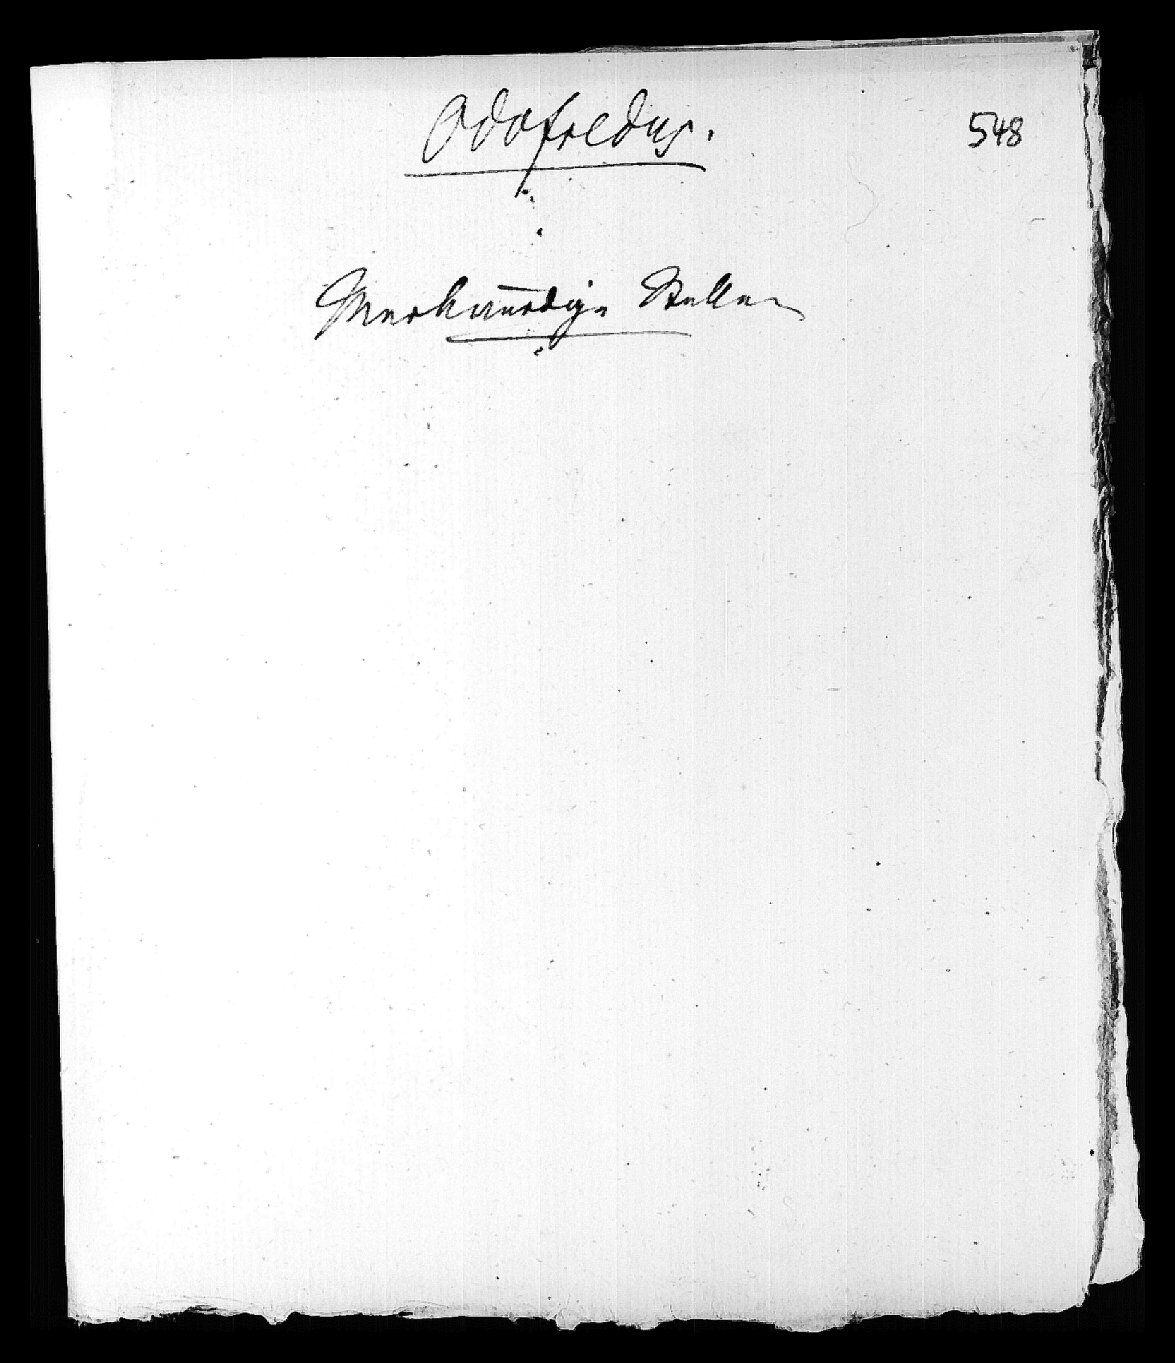 Odofredus.
548
Merkwürdige Stellen